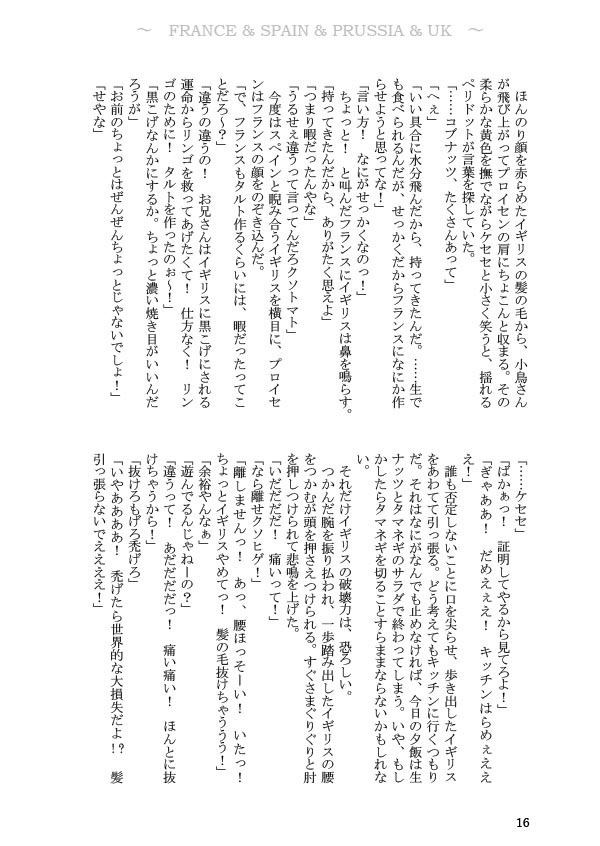 ～ FRANCE & SPAIN & PRUSSIA & UK ～
ほんのり顔を赤らめたイギリスの髪の毛から、小鳥さん
が飛び上がってプロイセンの肩にちょこんと収まる。その
柔らかな黄色を撫でながらケセセと小さく笑うと、揺れる
ペリドットが言葉を探していた。
「……コブナッツ、たくさんあって」
「へぇ」
「いい具合に水分飛んだから、持ってきたんだ。……生で
も食べられるんだが、せっかくだからフランスになにか作
らせようと思ってな！」
「言い方！　なにがせっかくなのっ！」
ちょっと！　と叫んだフランスにイギリスは鼻を鳴らす。
「持ってきたんだから、ありがたく思えよ」
「つまり暇だったんやな」
「うるせぇ違うって言ってんだろクソトマト」
今度はスペインと睨み合うイギリスを横目に、プロイセ
ンはフランスの顔をのぞき込んだ。
「で、フランスもタルト作るくらいには、暇だったってこ
とだろ～？」
「違うの違うの！　お兄さんはイギリスに黒こげにされる
運命からリンゴを救ってあげたくて！　仕方なく！　リン
ゴのために！　タルトを作ったのぉ～！」
「黒こげなんかにするか。ちょっと濃い焼き目がいいんだ
ろうが」
「お前のちょっとはぜんぜんちょっとじゃないでしょ！」
「せやな」
「……ケセセ」
「ばかぁっ！　証明してやるから見てろよ！」
「ぎゃああ！　だめえぇえ！　キッチンはらめぇええ
え！」
誰も否定しないことに口を尖らせ、歩き出したイギリス
をあわてて引っ張る。どう考えてもキッチンに行くつもり
だ。それはなにがなんでも止めなければ、今日の夕飯は生
ナッツとタマネギのサラダで終わってしまう。いや、もし
かしたらタマネギを切ることすらままならないかもしれな
い。
それだけイギリスの破壊力は、恐ろしい。
つかんだ腕を振り払われ、一歩踏み出したイギリスの腰
をつかむが頭を押さえつけられる。すぐさまぐりぐりと肘
を押しつけられて悲鳴を上げた。
「いだだだだ！　痛いって！」
「なら離せクソヒゲ！」
「離しませんっ！　あっ、腰ほっそーい！　いたっ！
ちょっとイギリスやめてっ！　髪の毛抜けちゃううう！」
「余裕やんなぁ」
「遊んでるんじゃねーの？」
「違うって！　あだだだだっ！　痛い痛い！　ほんとに抜
けちゃうから！」
「抜けろもげろ禿げろ」
「いやああああ！　禿げたら世界的な大損失だよ!?　髪
引っ張らないでえええ！」
16